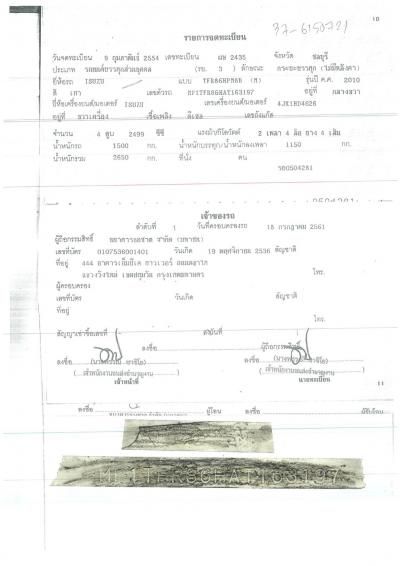 10
รายการจดทะเบียน
วันจดทะเบียน 9 กุมภาพันธ์ 2554 เลขทะเบียน ผษ 2435 จังหวัด ชลบุรี
ประเภท รถยนต์บรรทุกส่วนบุคคล (รย. 3) ลักษณะ กระบะบรรทุก (ไม่มีหลังคา)
ยี่ห้อรถ ISUZU แบบ (M) รุ่นปี ค.ศ. 2010
สี เทา เลขตัวรถ อยู่ที่ กลางขวา
ยี่ห้อเครื่องยนต์/มอเตอร์ ISUZU เลขเครื่องยนต์/มอเตอร์ 4JK1HD4826
อยู่ที่ ขวาเครื่อง เชื้อเพลิง ดีเซล เลขถังแก๊ส
จำนวน 4 สูบ 2499 ซีซี แรงม้า/กิโลวัตต์ 2 เพลา 4 ล้อ ยาง 4 เส้น
น้ำหนักรถ 1500 กก. น้ำหนักบรรทุก/น้ำหนักลงเพลา 1150 กก.
น้ำหนักรวม 2650 กก. ที่นั่ง คน
เจ้าของรถ
ลำดับที่ 1 วันที่ครอบครองรถ 18 กรกฎาคม 2561
ผู้ถือกรรมสิทธิ์ ธนาคารธนชาต จำกัด (มหาชน)
เลขที่บัตร 0107536001401 วันเกิด 19 พฤศจิกายน 2536 สัญชาติ
ที่อยู่ 444 อาคารเอ็มบีเค ทาวเวอร์ ถนนพญาไท
แขวงวังใหม่ เขตปทุมวัน กรุงเทพมหานคร โทร.
ผู้ครอบครอง
เลขที่บัตร วันเกิด สัญชาติ
ที่อยู่
โทร.
สัญญาเช่าซื้อเลขที่ ลงวันที่ ผู้ถือกรรมสิทธิ์
ลงชื่อ ลงชื่อ
เจ้าหน้าที่ นายทะเบียน
11
ลงชื่อ ผู้โอน ลงชื่อ ผู้รับโอน